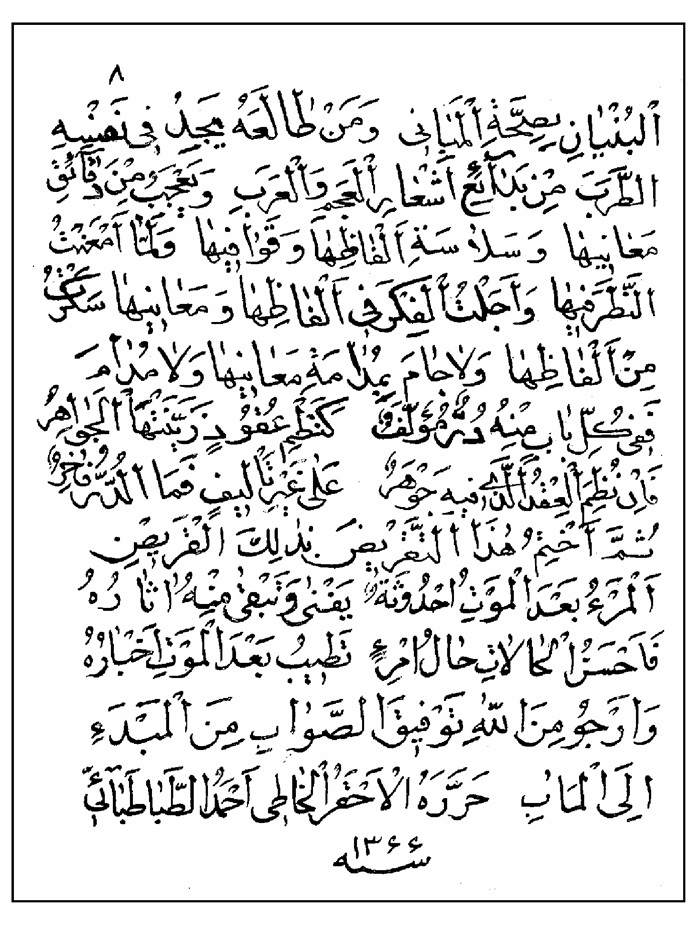 ٨
اَلْبُنْيٰانِ بِصِحَّةِ الْمَبٰانِى وَمَنْ طٰالَعَهُ يَجِدُ فِى نَفْسِهِ
الطَّرَبَ مِنْ بَدٰائِعِ اَشْعٰارِ الْعَجَمِ وَالْعَرَبِ وَيَعْجَبُ مِنْ دَقٰائِقِ
مَعٰانِيهٰا وَسَلٰاسَةِ اَلْفٰاظِهٰا وَقَوٰافِيهٰا وَلَمّٰا اَمْعَنْتُ
النَّظَرَ فِيهٰا وَاَجَلْتُ الْفِكَرَ فِى اَلْفٰاظِهٰا وَمَعٰانِيهٰا سَكَرْتُ
مِنْ اَلْفٰاظِهٰا وَلٰا جٰامَ بِمُدٰامَةِ مَعٰانِيهٰا وَلٰا مُدٰامَ
فَفِى كُلِّ بٰابٍ مِنْهُ دُرٌّ مُؤَلَّفٌ كَنَظْمِ عُقُودٍ زَيَّنَتْهَا الْجَوٰاهِرُ
فَاِنْ نُظِمَ الْعِقْدُ الَّذِى فِيهِ جَوْهَرٌ عَلٰى غَيْرِ تَأْلِيفٍ فَمَا الدُّرُّ فٰاخِرٌ
ثُمَّ اَخْتِمُ هٰذَا التَّقْرِيضَ بِذٰلِكَ الْقَرِيضِ
اَلْمَرْءُ بَعْدَ الْمَوْتِ اُحْدُوثَةٌ يَفْنٰى وَتَبْقٰى مِنْهُ اٰثٰارُهُ
فَاَحْسَنُ الْحٰالٰاتِ حٰالُ امْرِءٍ تَطِيبُ بَعْدَ الْمَوْتِ اَخْبٰارُهُ
وَاَرْجُو مِنَ اللّٰهِ تَوْفِيقَ الصَّوٰابِ مِنَ الْمَبْدَءِ
اِلَى الْمَاٰبِ حَرَّرَهُ الْاَحْقَرُ الْخٰاطِى اَحْمَدُ الطَّبٰاطَبٰائِىُّ
سنه ١٣٦٦